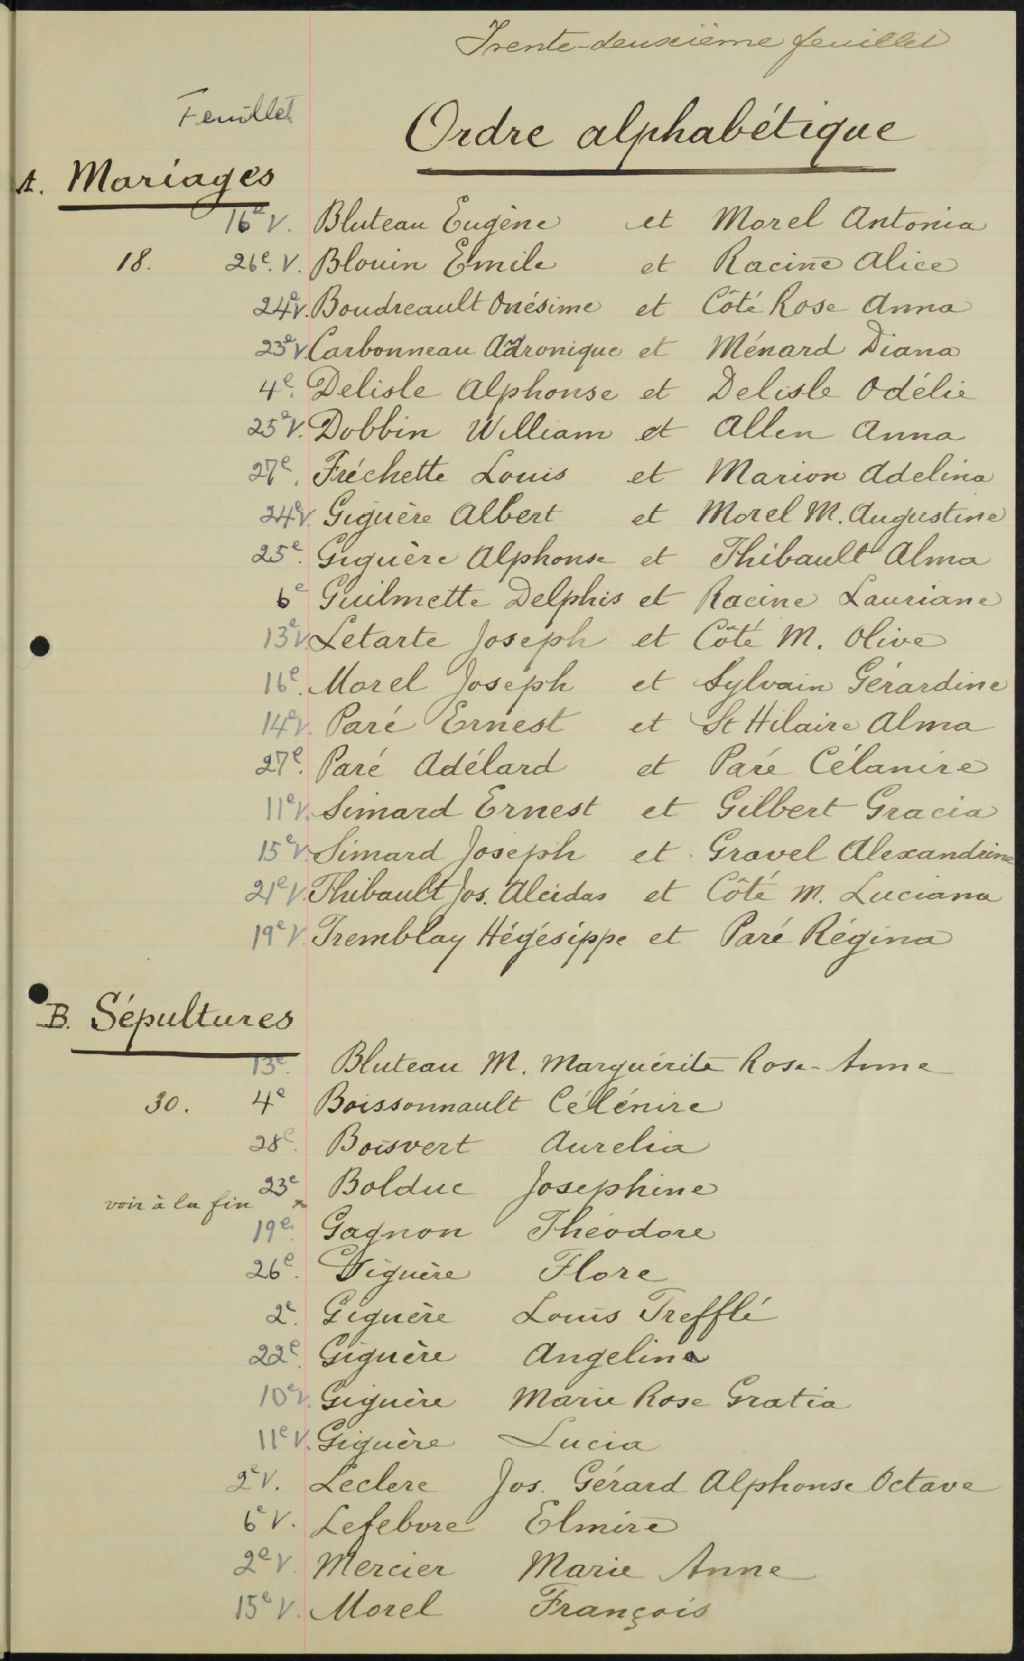 Trente-deuxième feuillet
Feuillet
Ordre alphabétique
A. Mariages
16e V. Bluteau Eugène et Morel Antonia
18. 26e. V. Blouin Emile et Racine Alice
24e V. Boudreault Onésime et Côté Rose Anna
23e V. Carbonneau Adronique et Ménard Diana
4e. Delisle Alphonse et Delisle Odélie
25e V. Dobbin William et Allen Anna
27e. Fréchette Louis et Marion Adelina
24e V Giguère Albert et Morel M. Augustine
25e. Giguère Alphonse et Thibault Alma
6e Guilmette Delphis et Racine Lauriane
13e V Letarte Joseph et Côté M. Olive
16e. Morel Joseph et Sylvain Gérardine
14e V. Paré Ernest et St Hilaire Alma
27e. Paré Adélard et Paré Célanire
11e V. Simard Ernest et Gilbert Gracia
15e V Simard Joseph et Gravel Alexandrine
21e V. Thibault Jos. Alcidas et Côté M. Luciana
19e V Tremblay Hégésippe et Paré Régina
B. Sépultures
13e. Bluteau M. Marguérite Rose-Anne
30. 4e Boissonnault Célénire
28e. Boisvert Aurelia
23e Bolduc Josephine
voir à la fin x
19e. Gagnon Théodore
26e. Giguère Flore
2e. Giguère Louis Trefflé
22e. Giguère Angelina
10e V. Giguère Marie Rose Gratia
11e V. Giguère Lucia
2e V. Leclerc Jos. Gérard Alphonse Octave
6e V. Lefebvre Elmire
2e V. Mercier Marie Anne
15e V. Morel François